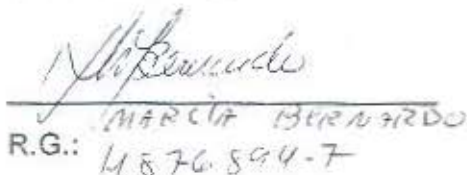 MARCIA BERNARDO
R.G.: 4876.894-7